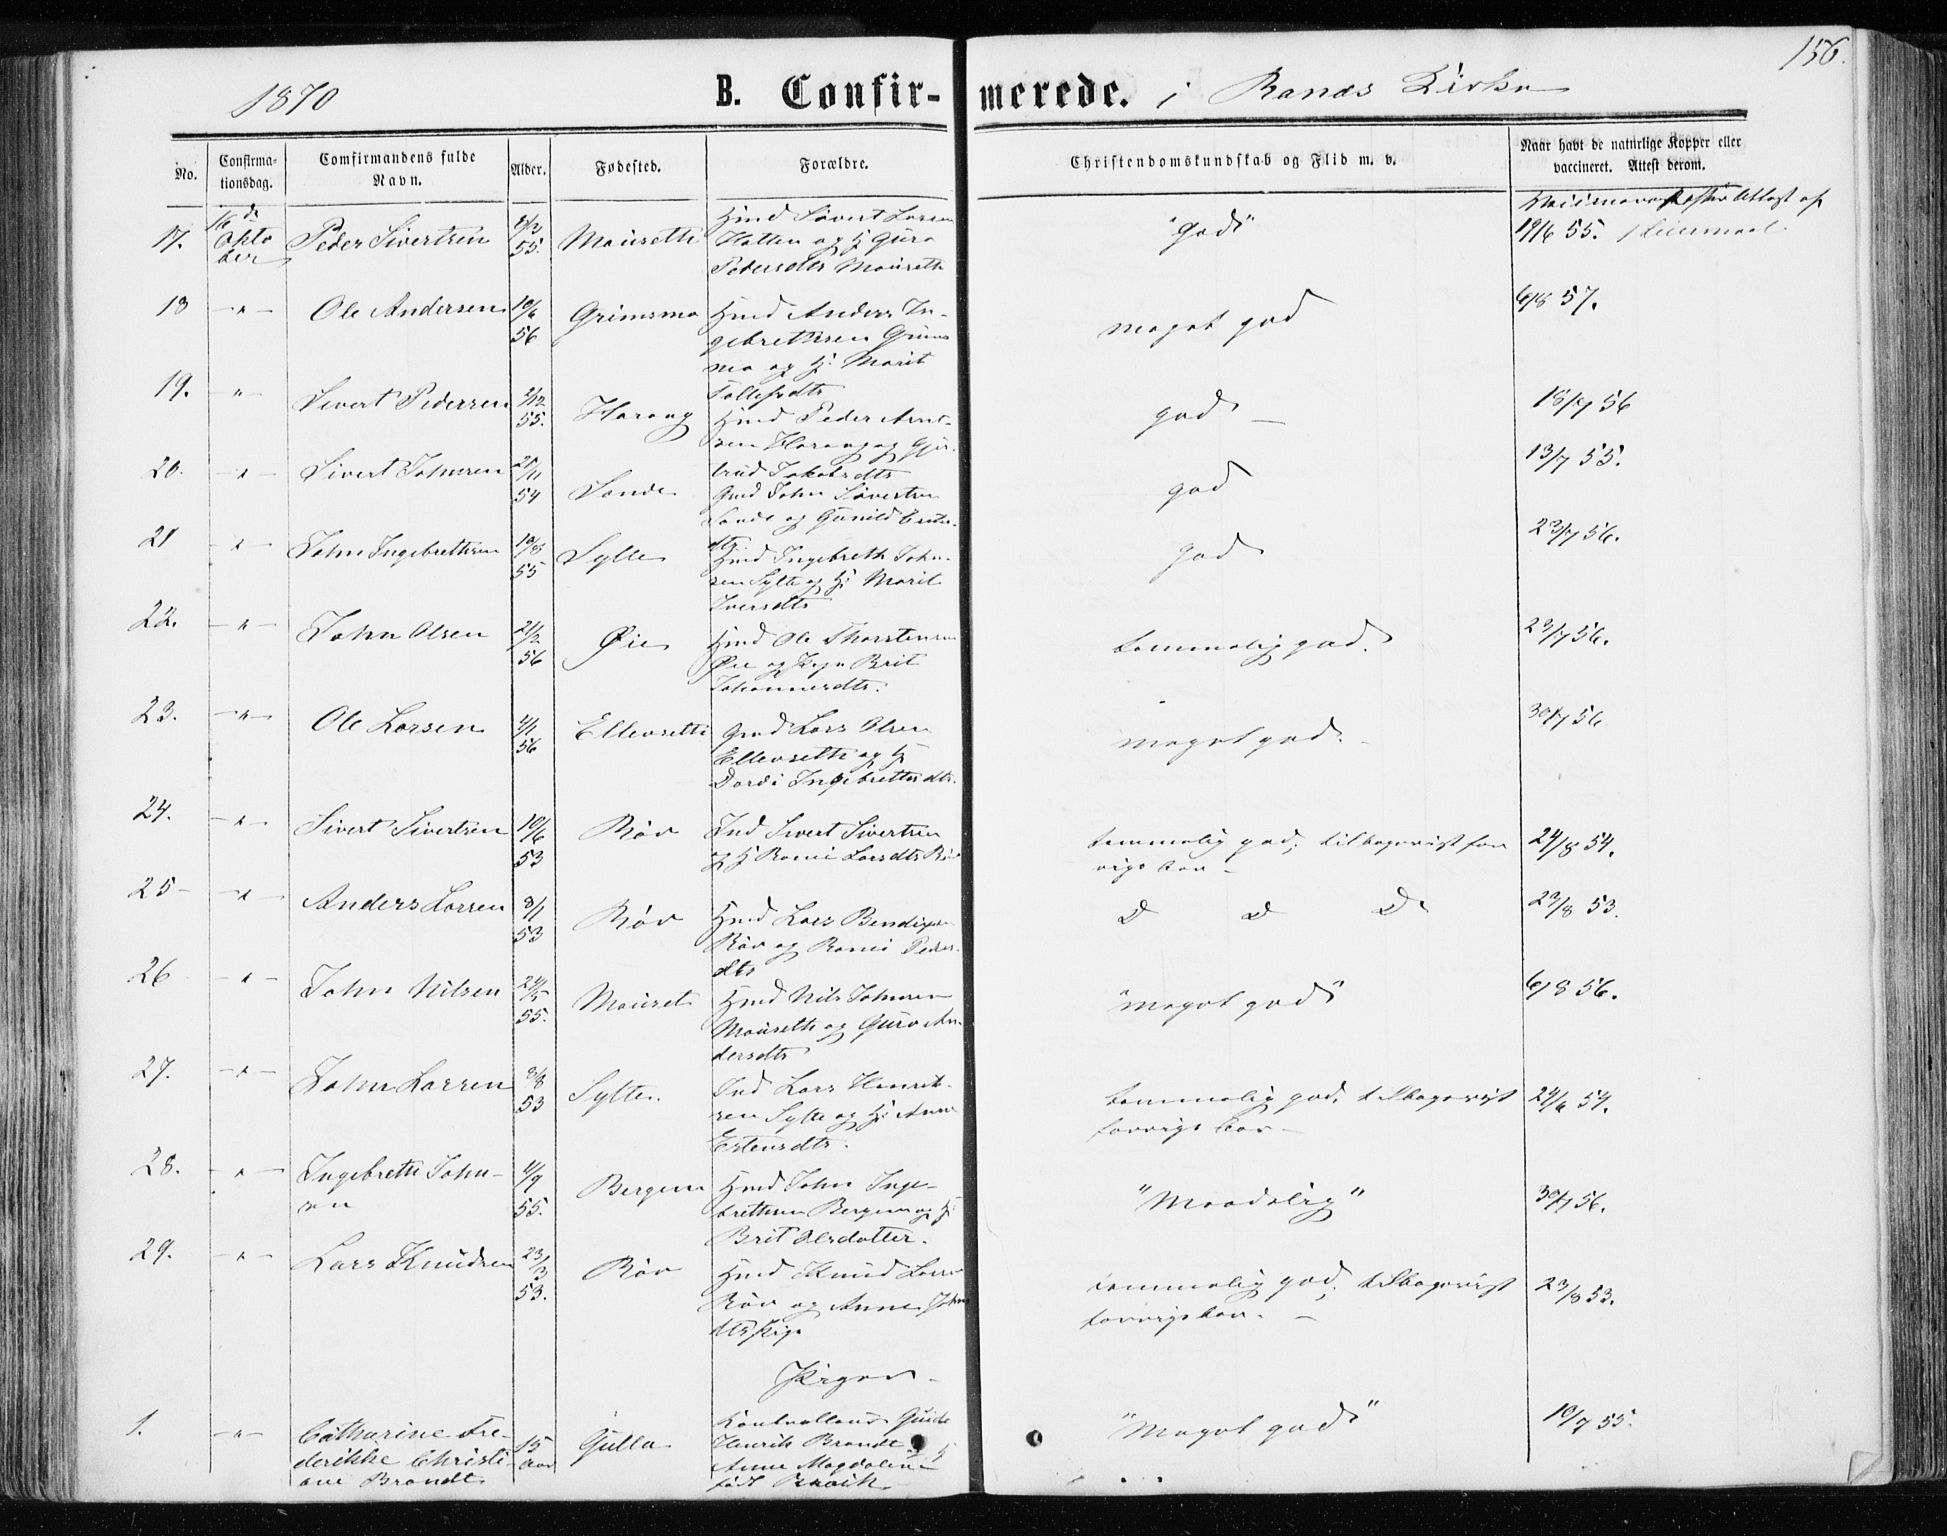 156.
1870 B. Confir- merede. i Ranæs Kirke
No.
Confirma-
tionsdag.
Comfirmandens fulde
Navn.
Alder.
Fødested.
Forældre.
Christendomskundskab og Flid m. v.
Naar havt de naturlige Kopper eller
vaccineret. Attest derom.
17. 16de Okto ber Peder Sivertsen 55. Mousetti
Hmd Sivert Larsen
Hatten og H Guro
Pedersdtr Mouseth
"god"
19/6 55.
18 -"- Ole Andersen 10/6 56 Grimsmo
Hmd Anders In-
gebrethsen Grims
mo og H. Marit
Tollefsdtr
meget god
6/8 57.
19. -"- Sivert Pedersen 2/12 55. Harang
Hmd Peder Arnt-
sen Harang og Gjer-
trud Jakobsdtr
god -
18/7 56
20. -"- Sivert John­sen 21/11 54 Sande
Gmd John Sivertsen
Sande og Gunild
dtr.
god
13/7 55.
21 -"- John Ingebrethsen 10/8 55 Sylte
Hmd Ingebreth John-
sen Sylte og H: Marit
Iversdtr
god
23/7 56.
22. -"- John Olsen 21/2 56 Øie
Hmd Ole Thorstensen
Øie og Brit
Johannesdtr.
temmelig god.
23/7 56.
23. -"- Ole Larsen 4/1 56 Ellevsetti
Gmd Lars Olsen
Ellevseth og H
Dordi Ingebrethsdtr.
meget god. -
30/7 56
24. -"- Sivert Sivertsen 10/6 53 Röv
Ind Sivert Sivertsen
og H Ranei Larsdtr Röv
temmelig god; tilbagevist for
rige Aar -
24/8 54.
25 -"- Anders Larsen 8/1 53 Röv
Hmd Lars Bendixen
Röv og Ranei Peders-
dtr
D D D
23/8 53.
26 -"- John Nilsen 24/5 55. Mouset
Hmd Nils Johnsen
Mouseth og Guro An-
dersdtr
"meget god"
6/8 56.
27. -"- John Larsen 8/8 53 Sylte.
Ind Lars Henrik-
sen Sylte og H: Anne
Estensdtr.
temmelig god, tilbagevist
forrige Aar -
24/6 54.
28. -"- Ingebreth John-
sen 4/9 55. Bergem
Hmd John Inge-
brethsen Bergem og H:
Brit Olsdatter.
"Maadelig"
30/7 56.
29. -"- Lars Knudsen 23/3 53. Röv
Hmd Knud Larsen
Röv og Anne Johns
dtr
temmelig god; tilbagevist
forrige Aar. -
23/8 53.
Piger -
1. -"- Catharine Fre-
derikke Christi-
ane Brandt 15 Aar Gulla
Kontrolleur Guide
Henrik Brandt og H
Anne Magdalene
født
"Meget god"
10/7 55.